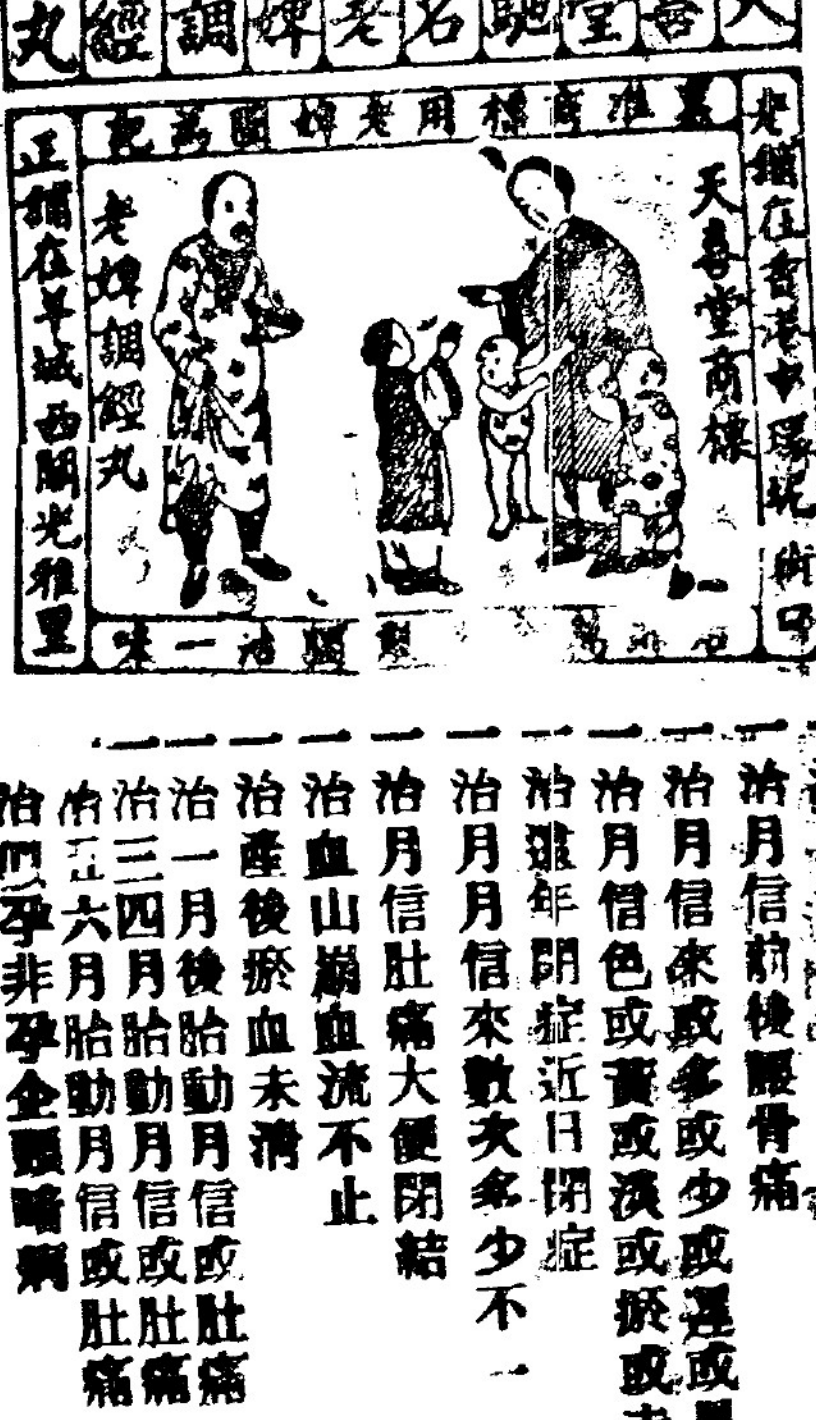 天喜堂馳名老婢調經丸
蒙准商標用老婢圖為記
老舖在香港中環坭街口
天喜堂商標
老婢調經丸
正舖在羊城西關光雅里
一味
一治月信前後腰骨痛
一治月信來或多或少或遲或
一治月信色或黃或淡或瘀或
一治遠年閉症近日閉症
一治月月信來數次多少不一
一治月信肚痛大便閉結
一治血山崩血流不止
一治產後瘀血未清
一治一月後胎動月信或肚痛
一治三四月胎動月信或肚痛
治五六月胎動月信或肚痛
治似孕非孕